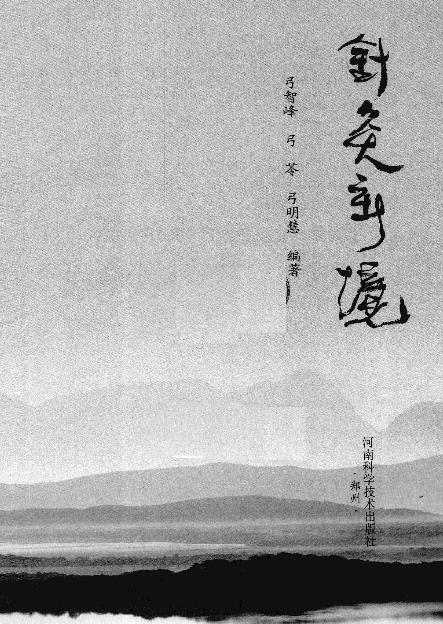 針灸新境
弓智峰 弓 苓 弓明慧 编著
河南科学技术出版社
·郑州·